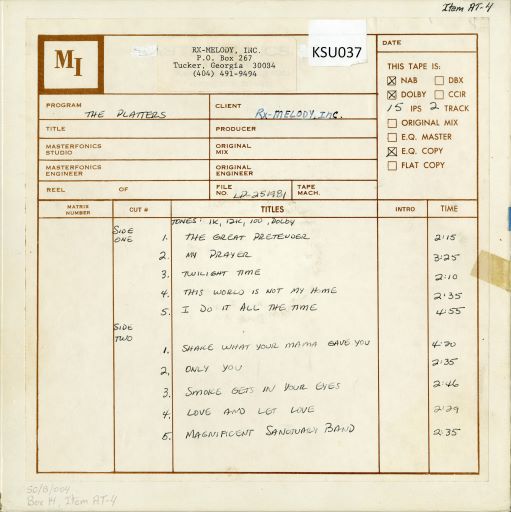 Item AT-4
MI
RX-MELODY, INC.
P.O. Box 267
Tucker, Georgia 30084
(404) 491-9494
KSU037
DATE
THIS TAPE IS:
☒ NAB ☐ DBX
☒ DOLBY ☐ CCIR
15 IPS 2 TRACK
☐ ORIGINAL MIX
☐ E.Q. MASTER
☒ E.Q. COPY
☐ FLAT COPY
PROGRAM THE PLATTERS
CLIENT RX-MELODY, INC.
TITLE
PRODUCER
MASTERFONICS STUDIO
ORIGINAL MIX
MASTERFONICS ENGINEER
ORIGINAL ENGINEER
REEL OF
FILE NO. LP-251981
TAPE MACH.
MATRIX NUMBER CUT # TITLES INTRO TIME
TONES: 1K, 12K, 100, DOLBY
SIDE ONE 1. THE GREAT PRETENDER 2:15
2. MY PRAYER 3:25
3. TWILIGHT TIME 2:10
4. THIS WORLD IS NOT MY HOME 2:35
5. I DO IT ALL THE TIME 4:55
SIDE TWO
1. SHAKE WHAT YOUR MAMA GAVE YOU 4:20
2. ONLY YOU 2:35
3. SMOKE GETS IN YOUR EYES 2:46
4. LOVE AND LET LOVE 2:29
5. MAGNIFICENT SANCTUARY BAND 2:35
SO/B/004
Box 14, Item AT-4